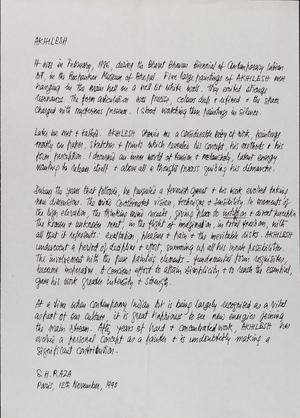 AKHLESH
It was in February, 1986, during the Bharat Bhavan Biennial of Contemporary Indian
Art, in the Roopankar Museum of Bhopal. Five large paintings of AKHLESH were
hanging in the main hall on a well lit white wall. They emitted strange
resonance. The form articulation was precise, colours deep & refined & the space
charged with mysterious presence. I stood watching these paintings in silence.
Later we met & talked. AKHLESH showed me a considerable body of work, paintings
mostly on paper, sketches & prints which revealed his concept, his methods & his
form perception. I discovered an inner world of tension & melancholy, latent energy
wanting to release itself & above all a thought process guiding his démarche.
During the years that followed, he pursued a fervent quest & his work evolved taking
new dimensions. The mind conditioned vision, technique & sensibility. In moments of
the high elevation, the thinking mind recedes, giving place to intuition & direct perception
the known & unknown meet, in the flight of imagination, in total freedom, with
all that it represents: exaltation, passion & pain & the inevitable risks. AKHLESH
underwent a period of discipline & effort, summing up all his inner possibilities.
The involvement with the pure painting elements – fundamental form requisites,
became imperative & conscious effort to attain simplicity & to reach the essential,
gave his work greater intensity & strength.
At a time when Contemporary Indian Art is being largely recognised as a vital
aspect of our culture, it is great happiness to see new energies joining
the main stream. After years of hard & concentrated work, AKHLESH has
evolved a personal concept as a painter & is undoubtedly making a
significant contribution.
S.H. RAZA
Paris, 12th November, 1990